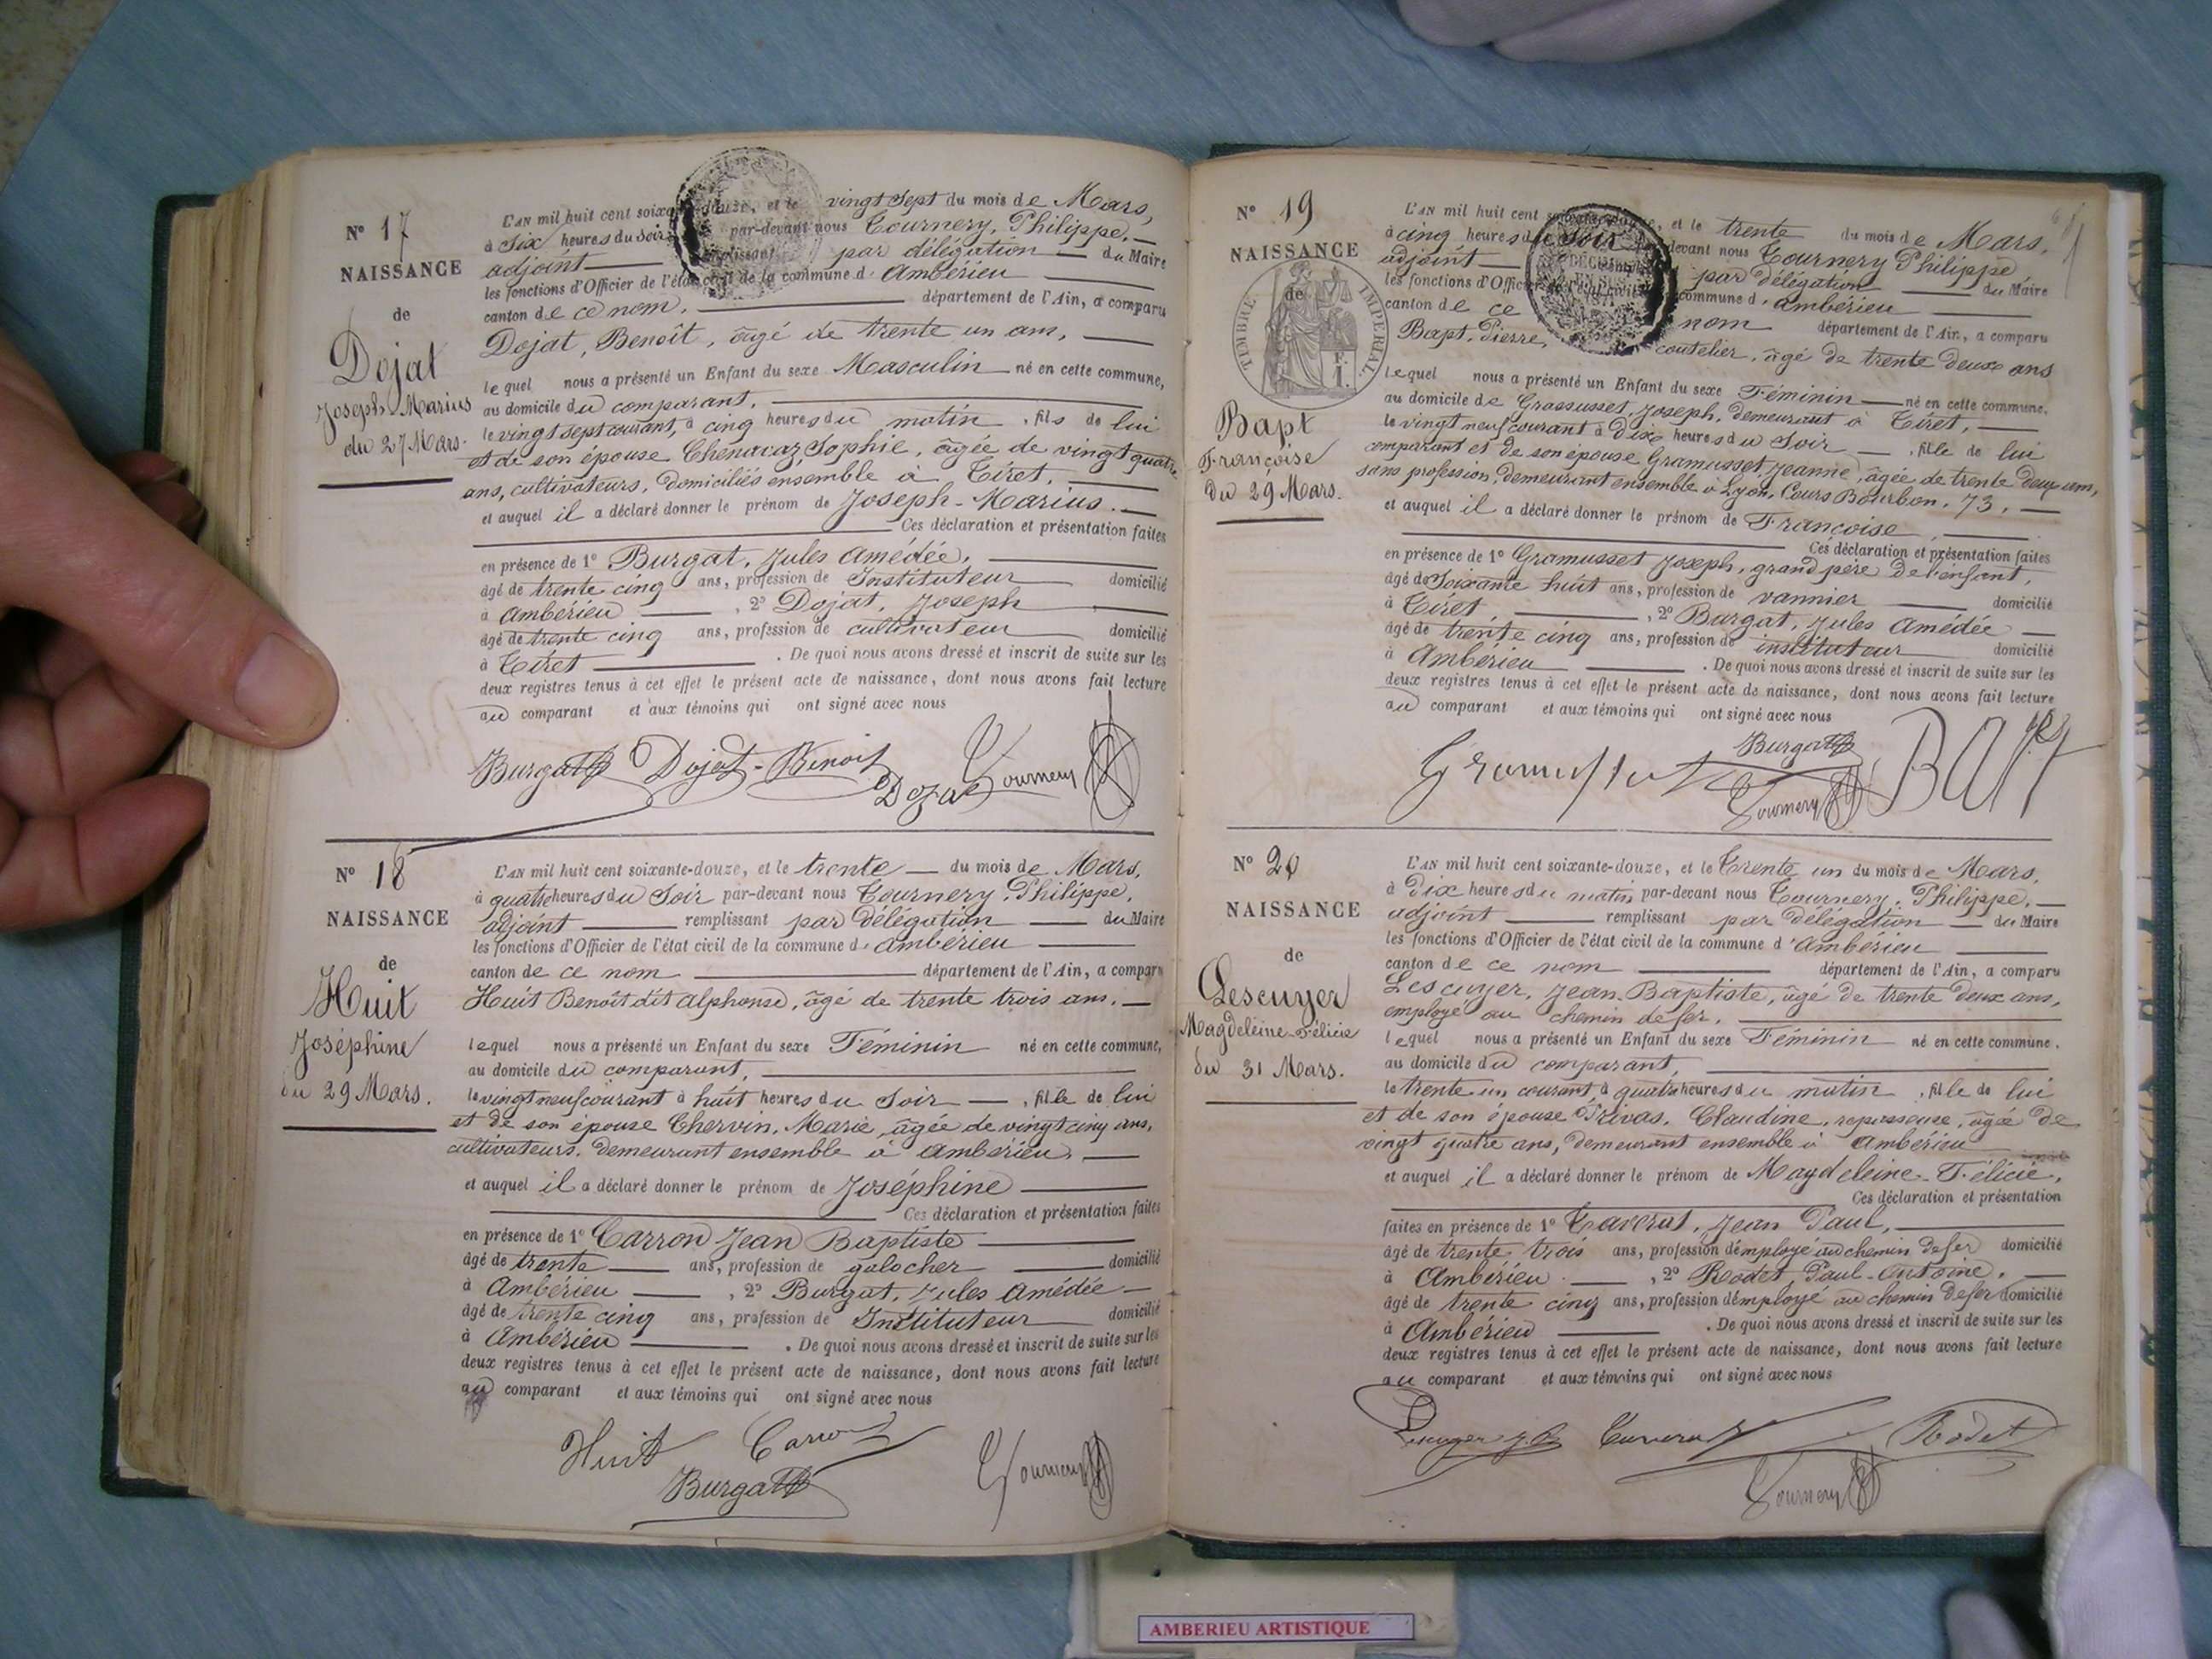 N° 17
NAISSANCE
de
Dojat
Joseph-Marius
du 27 Mars.
L'AN mil huit cent soixante-douze, et le vingt sept du mois de Mars,
à Six heures du Soir par-devant nous Tournery, Philippe,
adjoint remplissant par délégation du Maire
les fonctions d'Officier de l'état civil de la commune d' Ambérieu
canton de ce nom, département de l'Ain, a comparu
Dojat, Benoît, âgé de trente un ans,
lequel nous a présenté un Enfant du sexe Masculin né en cette commune,
au domicile du comparant,
le vingt sept courant, à cinq heures du matin, fils de lui
et de son épouse Chenavaz, Sophie, âgée de vingt quatre
ans, cultivateurs, domiciliés ensemble à Tiret,
et auquel il a déclaré donner le prénom de Joseph-Marius.
Ces déclaration et présentation faites
en présence de 1° Burgat, Jules Amédée,
âgé de trente cinq ans, profession de Instituteur domicilié
à Ambérieu, 2° Dojat, Joseph
âgé de trente cinq ans, profession de cultivateur domicilié
à Tiret. De quoi nous avons dressé et inscrit de suite sur les
deux registres tenus à cet effet le présent acte de naissance, dont nous avons fait lecture
au comparant et aux témoins qui ont signé avec nous
Burgat Dojat-Benoit Dojat Tournery
N° 18
NAISSANCE
de
Huit
Joséphine
du 29 Mars.
L'AN mil huit cent soixante-douze, et le trente du mois de Mars,
à quatre heures du Soir par-devant nous Tournery, Philippe,
adjoint remplissant par délégation du Maire
les fonctions d'Officier de l'état civil de la commune d' Ambérieu
canton de ce nom département de l'Ain, a comparu
Huit Benoît dit Alphonse, âgé de trente trois ans,
lequel nous a présenté un Enfant du sexe Féminin né en cette commune,
au domicile du comparant,
le vingt neuf courant à huit heures du Soir, fille de lui
et de son épouse Chervin, Marie, âgée de vingt cinq ans,
cultivateurs, demeurant ensemble à Ambérieu,
et auquel il a déclaré donner le prénom de Joséphine
Ces déclaration et présentation faites
en présence de 1° Carron Jean Baptiste
âgé de trente ans, profession de galocher domicilié
à Ambérieu, 2° Burgat, Jules Amédée
âgé de trente cinq ans, profession de Instituteur domicilié
à Ambérieu. De quoi nous avons dressé et inscrit de suite sur les
deux registres tenus à cet effet le présent acte de naissance, dont nous avons fait lecture
au comparant et aux témoins qui ont signé avec nous
Huit Carron
Burgat Tournery
N° 19
NAISSANCE
de
TIMBRE IMPERIAL
Bapt
Françoise
du 29 Mars.
L'AN mil huit cent soixante-douze, et le trente du mois de Mars,
à cinq heures du Soir par-devant nous Tournery Philippe
adjoint par délégation du Maire
les fonctions d'Officier de l'état civil commune d' Ambérieu
canton de ce nom département de l'Ain, a comparu
Bapt, Pierre, coutelier, âgé de trente deux ans
lequel nous a présenté un Enfant du sexe Féminin né en cette commune,
au domicile de Gramusset, Joseph, demeurant à Tiret,
le vingt neuf courant à dix heures du Soir, fille de lui
comparant et de son épouse Gramusset, Jeanne, âgée de trente deux ans,
sans profession, demeurant ensemble à Lyon, Cours Bourbon, 73,
et auquel il a déclaré donner le prénom de Françoise,
Ces déclaration et présentation faites
en présence de 1° Gramusset Joseph, grand père de l'enfant,
âgé de soixante huit ans, profession de vannier domicilié
à Tiret, 2° Burgat, Jules Amédée
âgé de trente cinq ans, profession de instituteur domicilié
à Ambérieu. De quoi nous avons dressé et inscrit de suite sur les
deux registres tenus à cet effet le présent acte de naissance, dont nous avons fait lecture
au comparant et aux témoins qui ont signé avec nous
Gramusset Burgat Tournery Bapt
N° 20
NAISSANCE
de
Lescuyer
Magdeleine-Félicie
du 31 Mars.
L'AN mil huit cent soixante-douze, et le Trente un du mois de Mars,
à Dix heures du matin par-devant nous Tournery, Philippe,
adjoint remplissant par délégation du Maire
les fonctions d'Officier de l'état civil de la commune d'Ambérieu
canton de ce nom département de l'Ain, a comparu
Lescuyer, Jean-Baptiste, âgé de trente deux ans,
employé au chemin de fer,
lequel nous a présenté un Enfant du sexe Féminin né en cette commune,
au domicile du comparant,
le trente un courant, à quatre heures du matin, fille de lui
et de son épouse Privas, Claudine, repasseuse, âgée de
vingt quatre ans, demeurant ensemble à Ambérieu
et auquel il a déclaré donner le prénom de Magdeleine-Félicie,
Ces déclaration et présentation
faites en présence de 1° Taverut, Jean Paul,
âgé de trente trois ans, profession d'employé au chemin de fer domicilié
à Ambérieu, 2° Rodet, Paul-Antoine,
âgé de trente cinq ans, profession d'employé au chemin de fer domicilié
à Ambérieu. De quoi nous avons dressé et inscrit de suite sur les
deux registres tenus à cet effet le présent acte de naissance, dont nous avons fait lecture
au comparant et aux témoins qui ont signé avec nous
Lescuyer J.B. Taverut Rodet
Tournery
AMBERIEU ARTISTIQUE